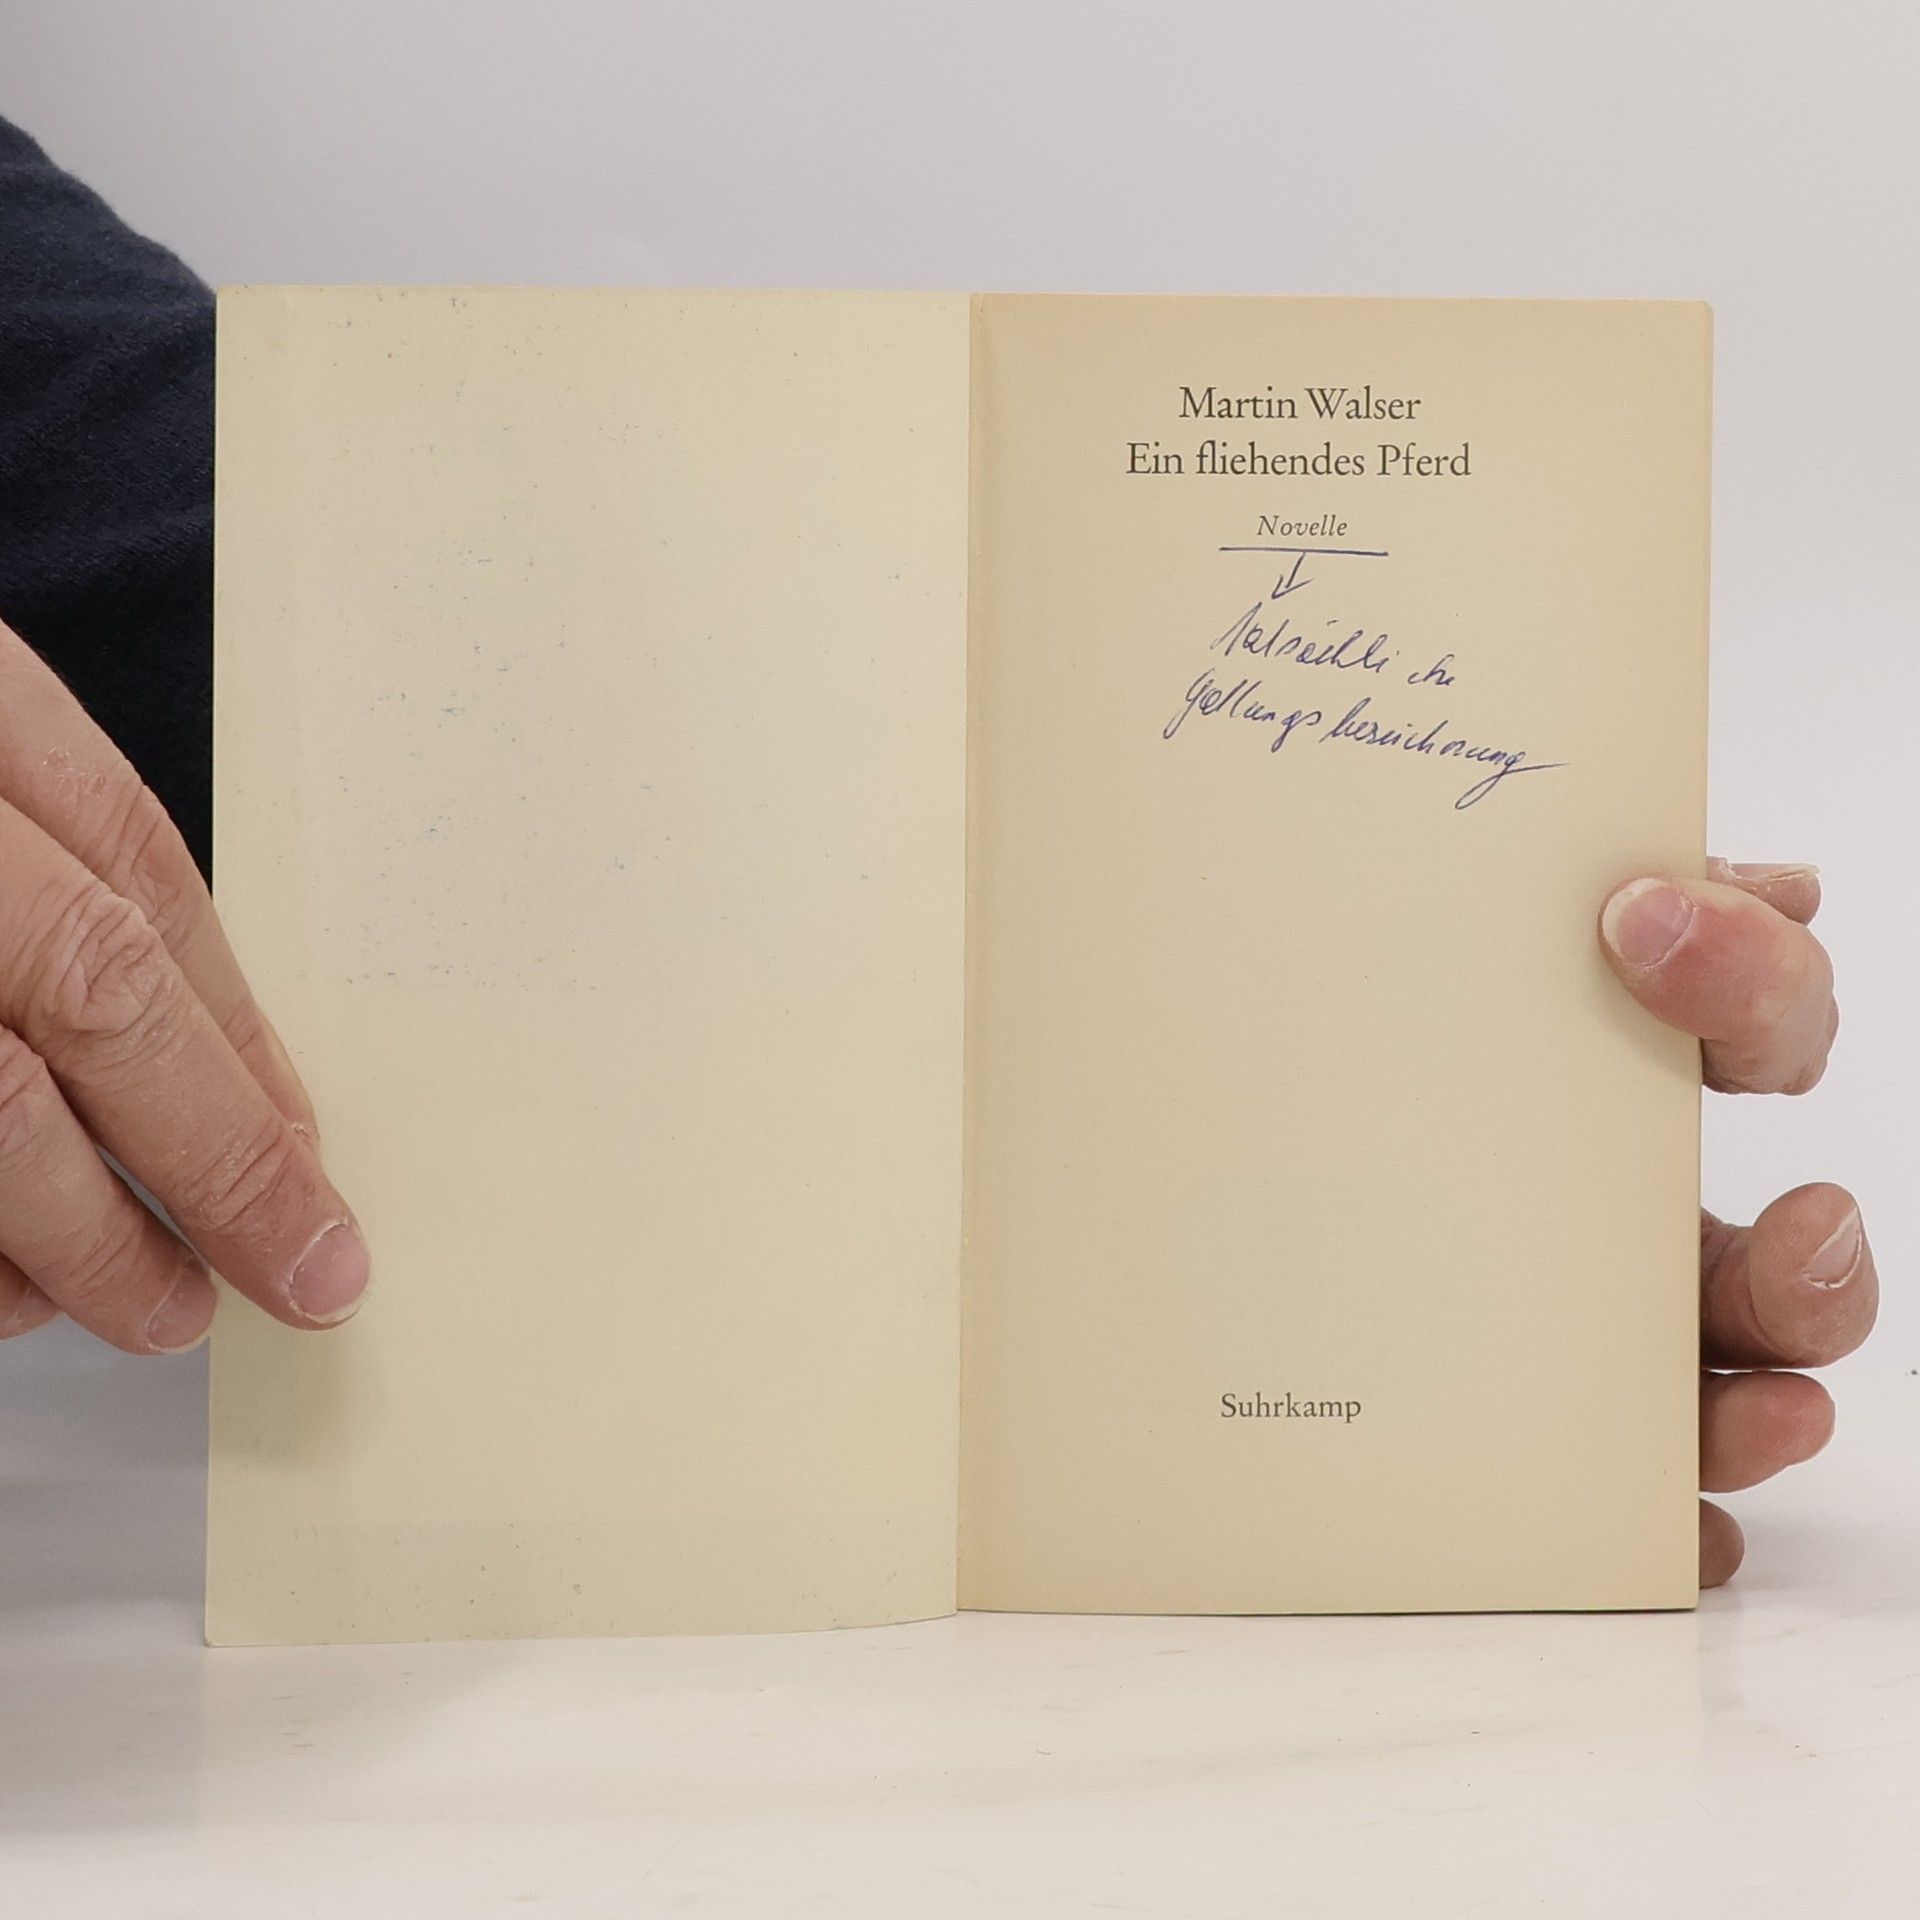 Martin Walser
Ein fliehendes Pferd
Novelle
Tatsächliche
Gattungsbezeichnung
Suhrkamp